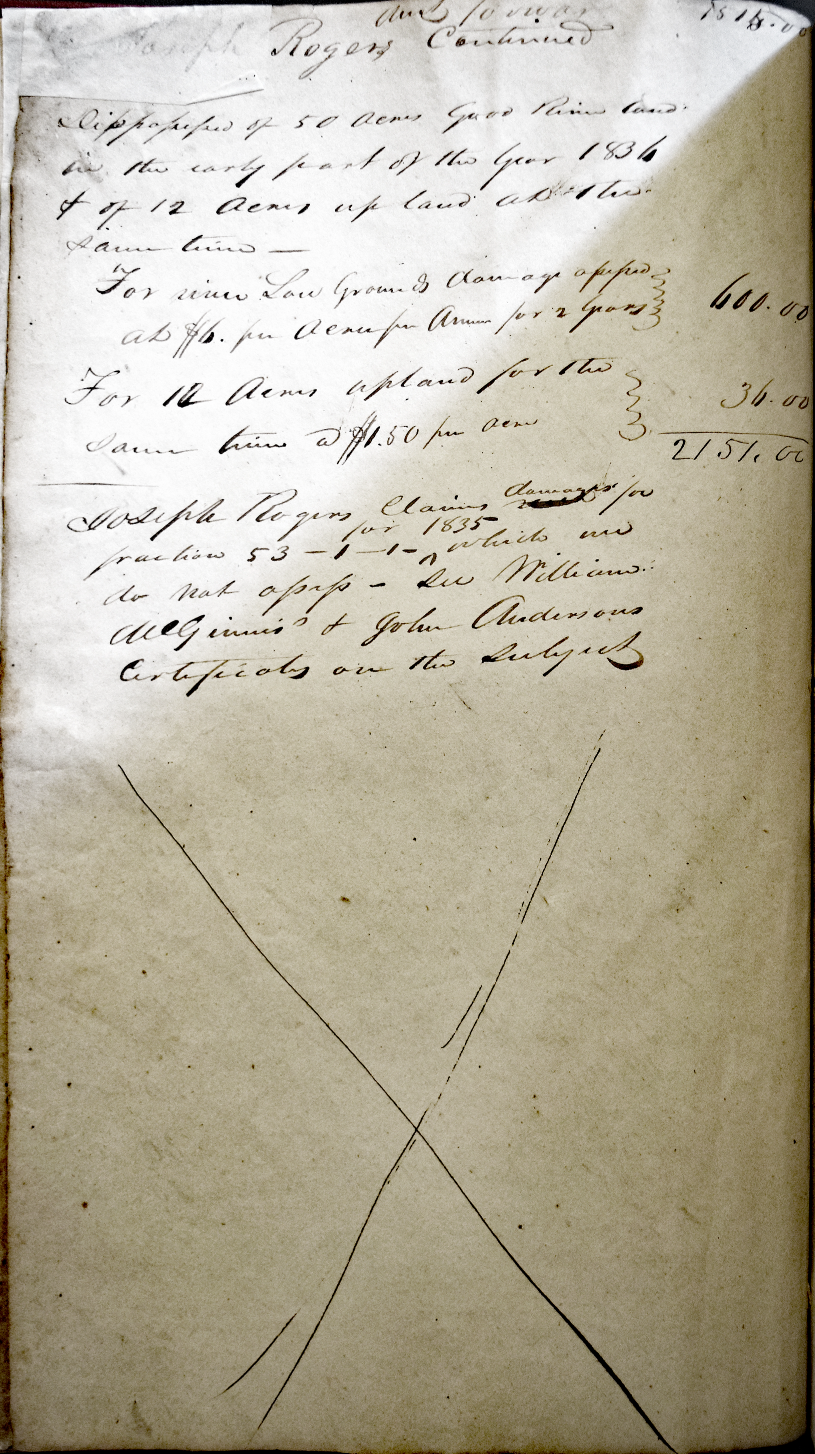 Amt forward 1515.00
Joseph Rogers Continued
Dispossessed of 50 Acres Good River land
in the early part of the Year 1836
& of 12 Acres up land at the
same time —
For river Low Grounds damage assessed
at $6. per Acre per Annum for 2 Years 600.00
For 12 Acres upland for the 36.00
same time @ $1.50 per acre
2151.00
Joseph Rogers Claims damages for
for 1835
fraction 53 - 1 - 1 - ^ which we
do not assess - See William
McGinnis' & John Andersons
Certificates on the subject